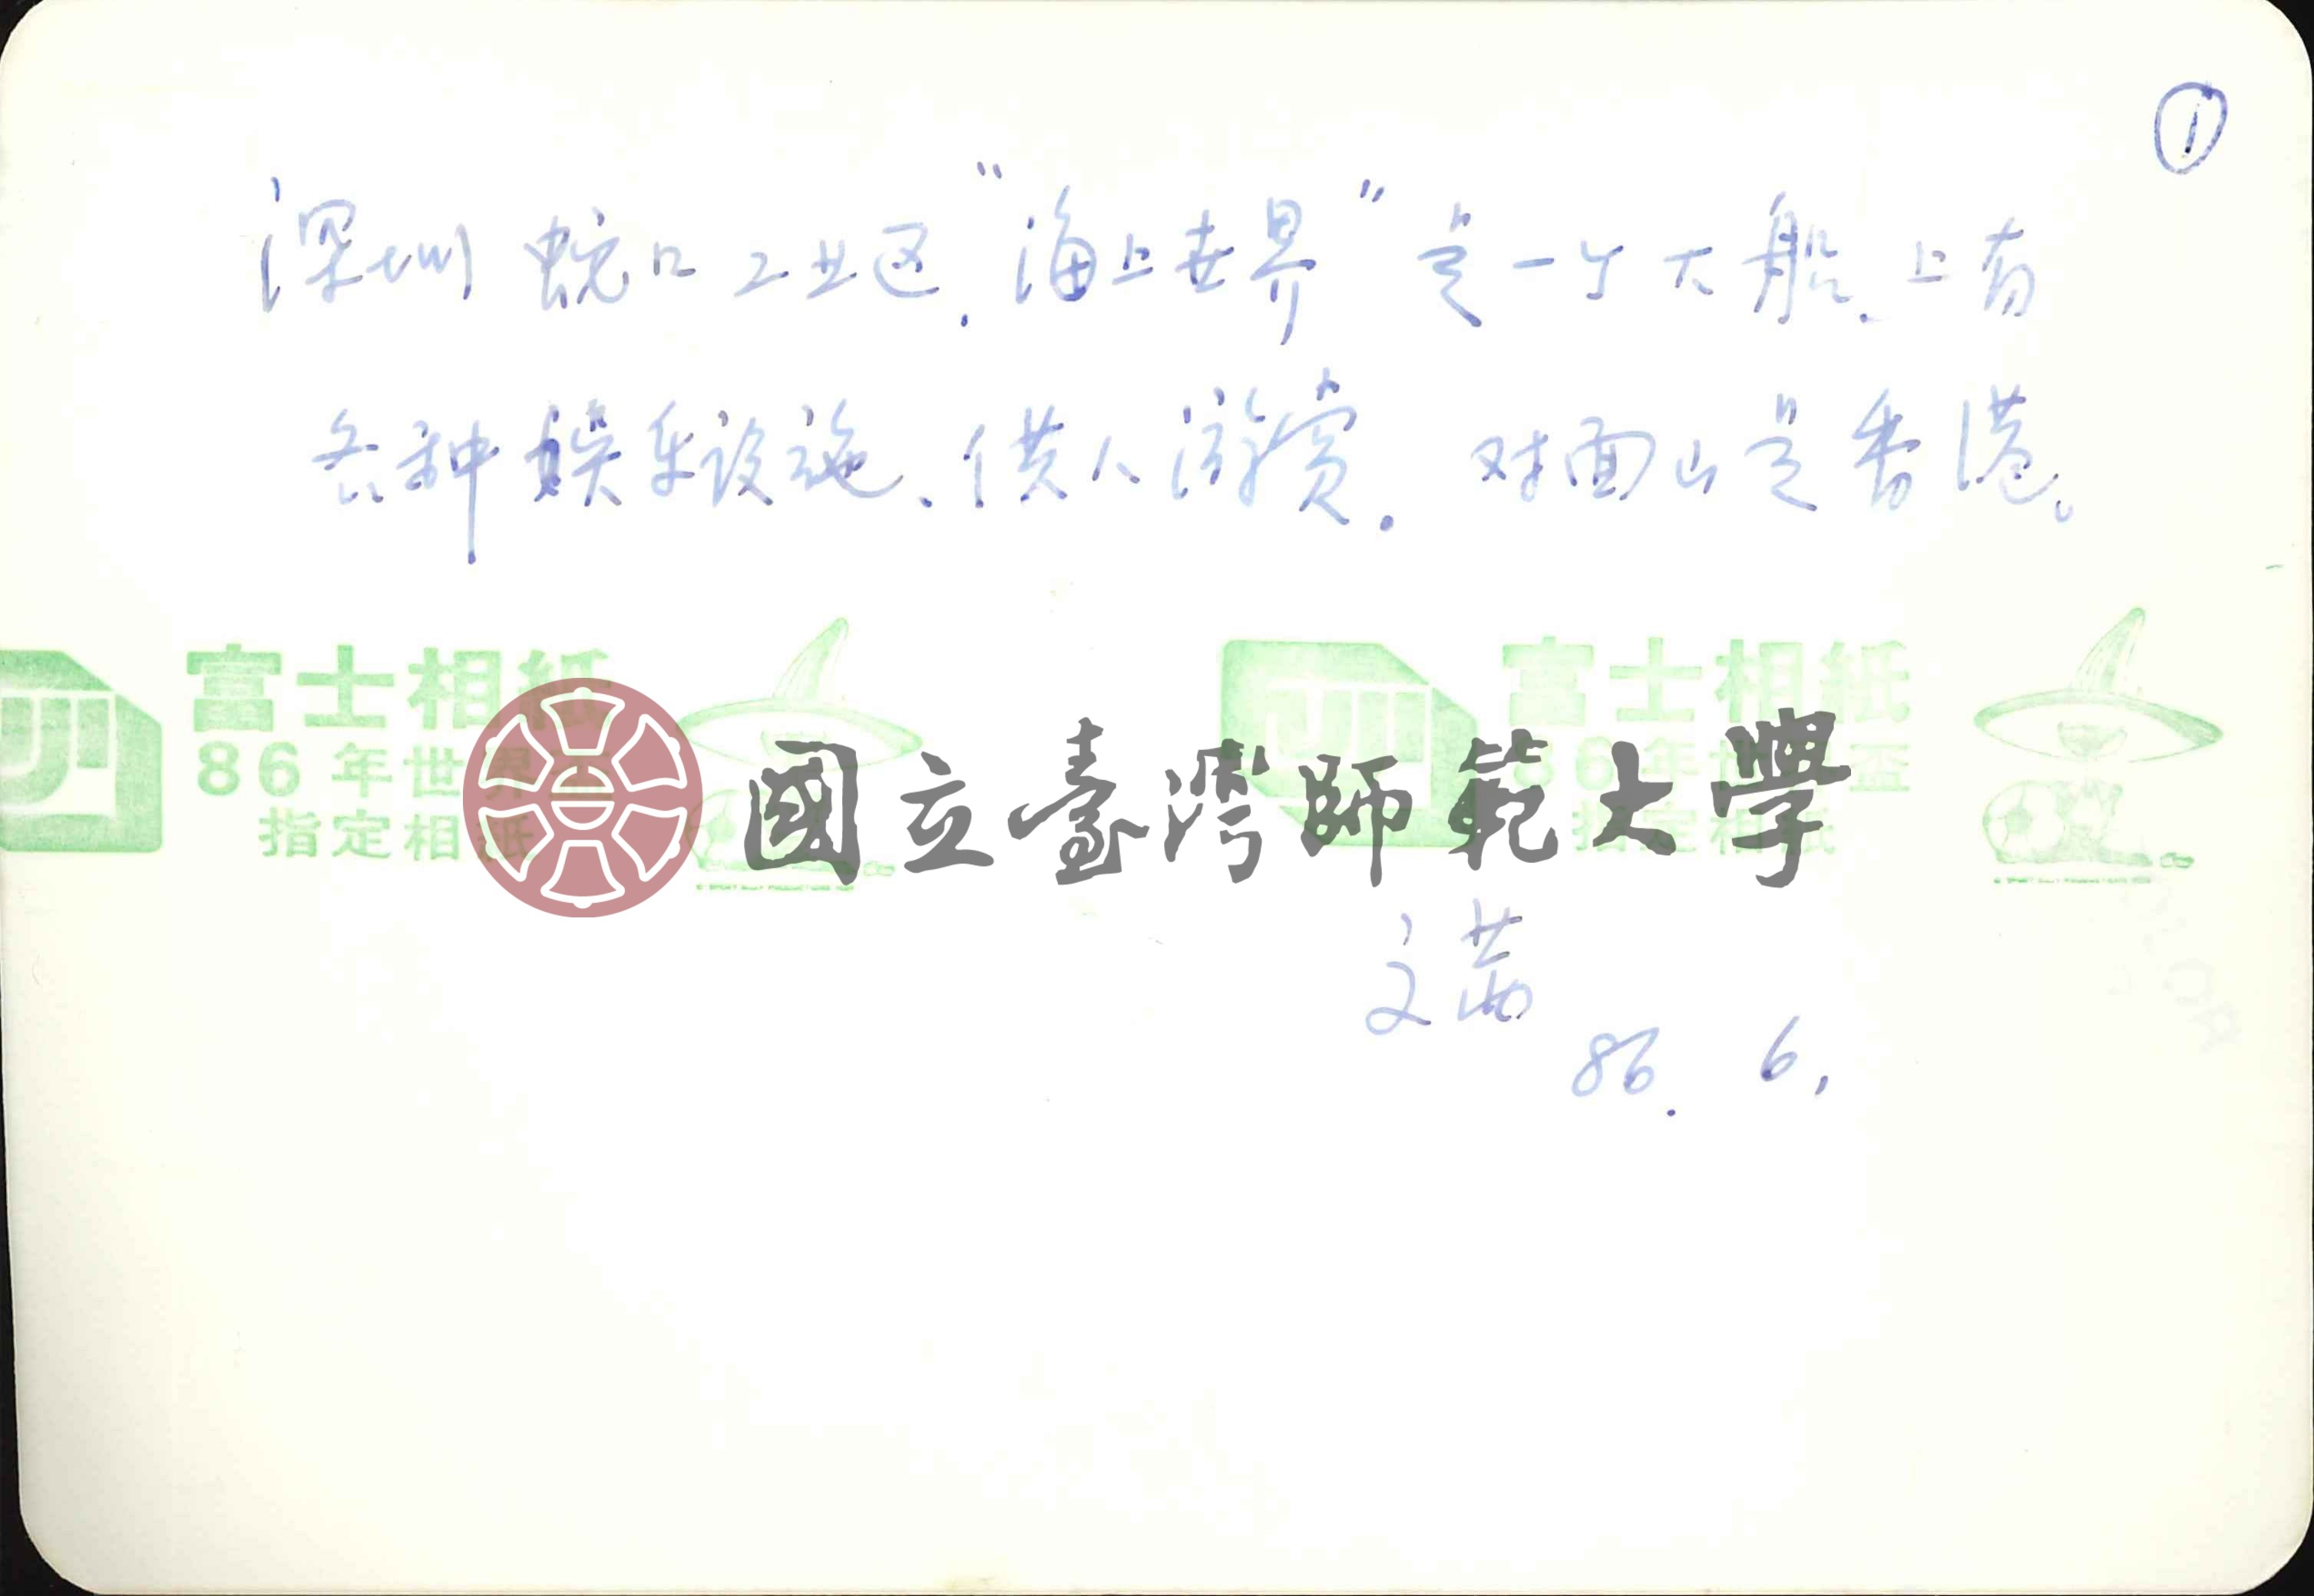 ①
深圳蛇口工业区."海上世界"是一个大船.上有
各种娱乐设施、供人游赏.对面山是香港。
富士相紙
86年世界盃
指定相紙
富士相紙
86年世界盃
指定相紙
國立臺灣師範大學
文茜
86. 6.